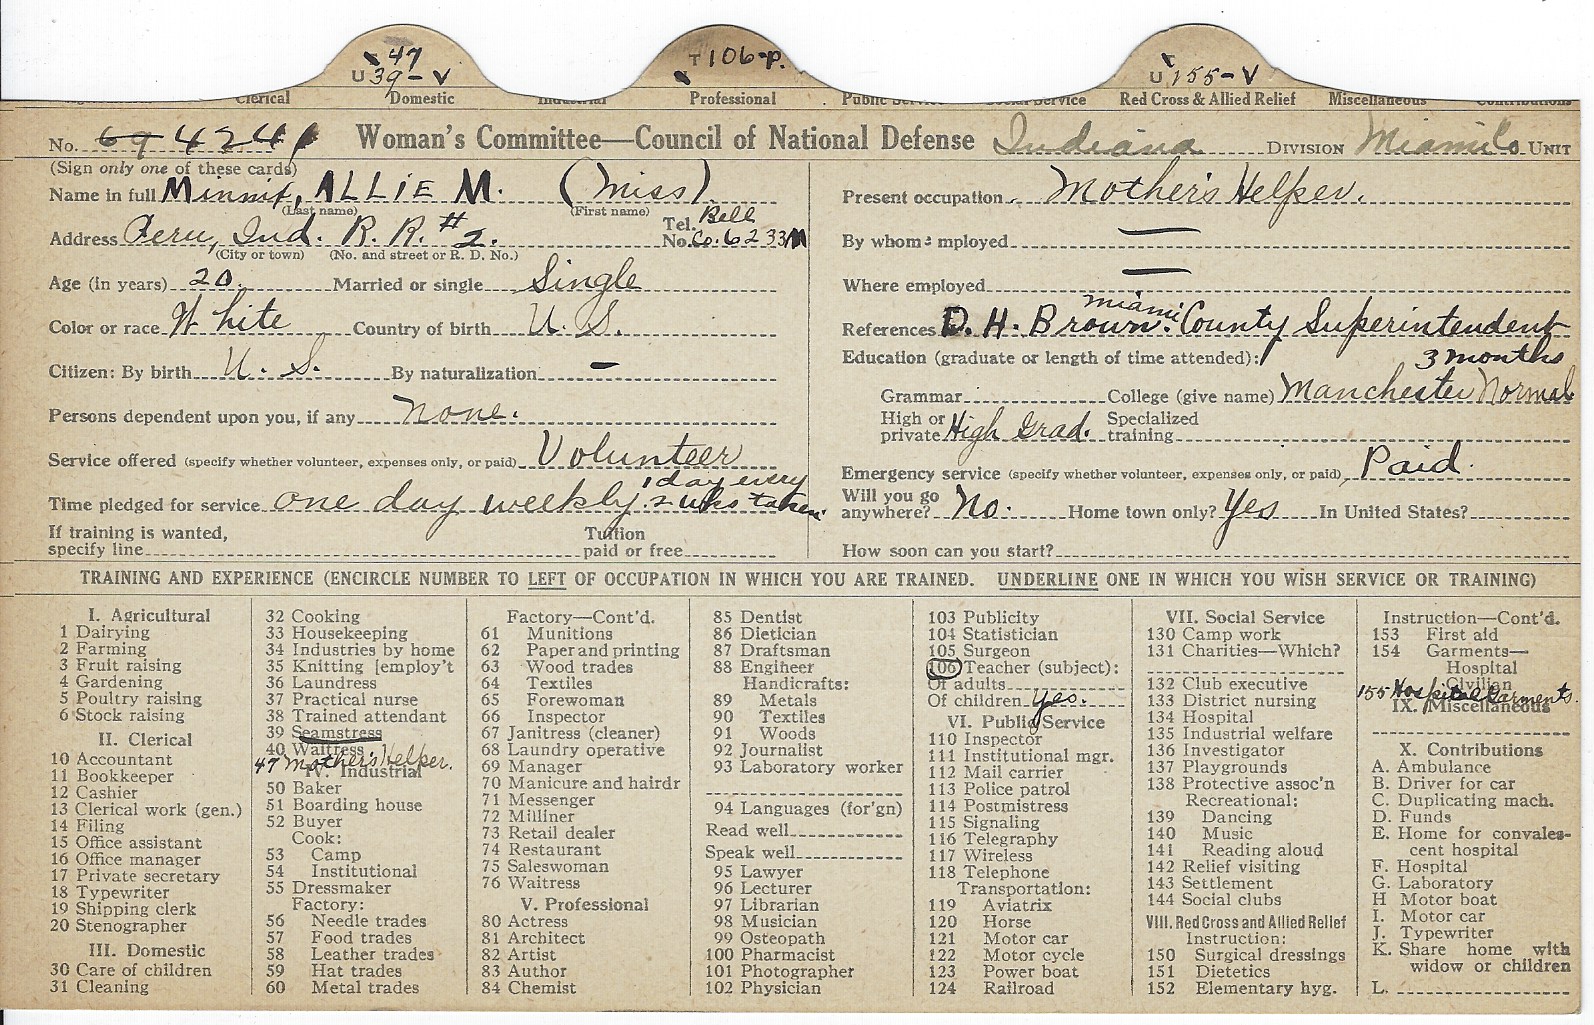 47
U 39-V
T 106-P.
U 155-V
Clerical Domestic Industrial Professional Public Service Social Service Red Cross & Allied Relief Miscellaneous Contributions
No. 69 4241 Woman's Committee—Council of National Defense Indiana DIVISION Miami Co UNIT
(Sign only one of these cards)
Name in full Minnix, ALLIE M. (Miss)
(Last name) (First name)
Address Peru, Ind. R. R. #2. Tel. No. Bell Co. 6233M
(City or town) (No. and street or R. D. No.)
Age (in years) 20. Married or single Single
Color or race White Country of birth U. S.
Citizen: By birth U. S. By naturalization —
Persons dependent upon you, if any none.
Service offered (specify whether volunteer, expenses only, or paid) Volunteer
1 day every
Time pledged for service one day weekly. 2 wks taken.
If training is wanted, Tuition
specify line paid or free
Present occupation Mother's Helper.
By whom employed —
Where employed —
References D. H. Brown. Miami County Superintendent
Education (graduate or length of time attended): 3 months
Grammar College (give name) Manchester Normal
High or private High Grad. Specialized training
Emergency service (specify whether volunteer, expenses only, or paid) Paid.
Will you go anywhere? No. Home town only? Yes In United States?
How soon can you start?
TRAINING AND EXPERIENCE (ENCIRCLE NUMBER TO LEFT OF OCCUPATION IN WHICH YOU ARE TRAINED. UNDERLINE ONE IN WHICH YOU WISH SERVICE OR TRAINING)
I. Agricultural
1 Dairying
2 Farming
3 Fruit raising
4 Gardening
5 Poultry raising
6 Stock raising
II. Clerical
10 Accountant
11 Bookkeeper
12 Cashier
13 Clerical work (gen.)
14 Filing
15 Office assistant
16 Office manager
17 Private secretary
18 Typewriter
19 Shipping clerk
20 Stenographer
III. Domestic
30 Care of children
31 Cleaning
32 Cooking
33 Housekeeping
34 Industries by home
35 Knitting [employ't
36 Laundress
37 Practical nurse
38 Trained attendant
39 Seamstress
40 Waitress
47 Mother's Helper.
IV. Industrial
50 Baker
51 Boarding house
52 Buyer
Cook:
53 Camp
54 Institutional
55 Dressmaker
Factory:
56 Needle trades
57 Food trades
58 Leather trades
59 Hat trades
60 Metal trades
Factory—Cont'd.
61 Munitions
62 Paper and printing
63 Wood trades
64 Textiles
65 Forewoman
66 Inspector
67 Janitress (cleaner)
68 Laundry operative
69 Manager
70 Manicure and hairdr
71 Messenger
72 Milliner
73 Retail dealer
74 Restaurant
75 Saleswoman
76 Waitress
V. Professional
80 Actress
81 Architect
82 Artist
83 Author
84 Chemist
85 Dentist
86 Dietician
87 Draftsman
88 Engineer
Handicrafts:
89 Metals
90 Textiles
91 Woods
92 Journalist
93 Laboratory worker
94 Languages (for'gn)
Read well
Speak well
95 Lawyer
96 Lecturer
97 Librarian
98 Musician
99 Osteopath
100 Pharmacist
101 Photographer
102 Physician
103 Publicity
104 Statistician
105 Surgeon
106 Teacher (subject):
Of adults
Of children Yes.
VI. Public Service
110 Inspector
111 Institutional mgr.
112 Mail carrier
113 Police patrol
114 Postmistress
115 Signaling
116 Telegraphy
117 Wireless
118 Telephone
Transportation:
119 Aviatrix
120 Horse
121 Motor car
122 Motor cycle
123 Power boat
124 Railroad
VII. Social Service
130 Camp work
131 Charities—Which?
132 Club executive
133 District nursing
134 Hospital
135 Industrial welfare
136 Investigator
137 Playgrounds
138 Protective assoc'n
Recreational:
139 Dancing
140 Music
141 Reading aloud
142 Relief visiting
143 Settlement
144 Social clubs
VIII. Red Cross and Allied Relief
Instruction:
150 Surgical dressings
151 Dietetics
152 Elementary hyg.
Instruction—Cont'd.
153 First aid
154 Garments—
Hospital
Civilian
155 Hospital Garments.
IX. Miscellaneous
X. Contributions
A. Ambulance
B. Driver for car
C. Duplicating mach.
D. Funds
E. Home for convales-
cent hospital
F. Hospital
G. Laboratory
H Motor boat
I. Motor car
J. Typewriter
K. Share home with
widow or children
L.